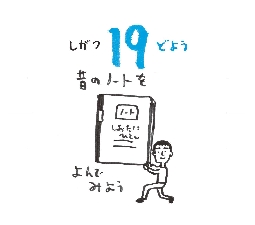 しがつ 19 どよう
昔のノートを
ノート
しおたに
よんで
みよう